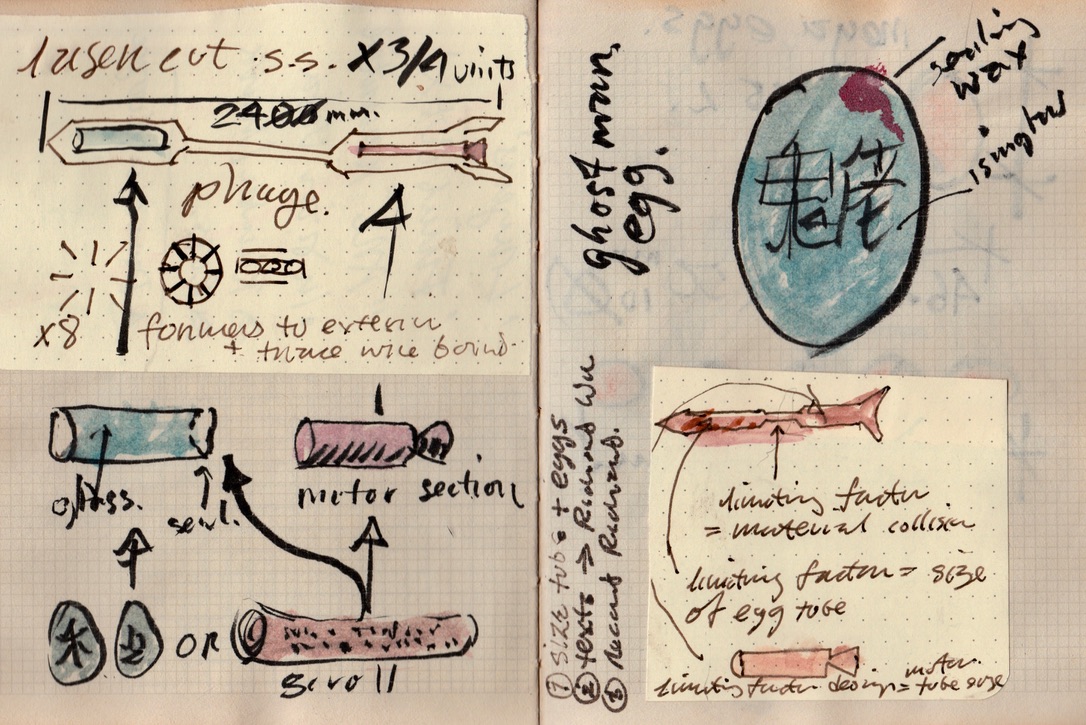 laser cut s.s. x3/4 units
2400 mm.
phage.
x8
formers to exterior
+ trace wire bound.
glass.
seal.
motor section
OR
scroll
ghost man.
egg.
sealing
wax
① size tube + eggs
② texts →
③
limiting factor
= material collision
limiting factor = size
of egg tube
limiting factor design = motor
tube size